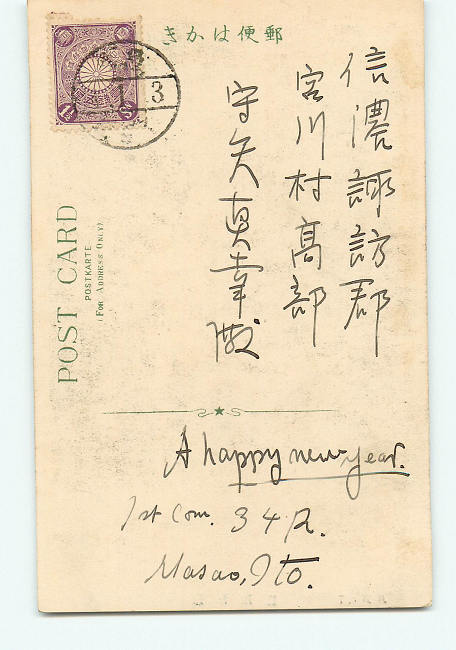 郵便はかき
信濃諏訪郡
宮川村高部
守矢真幸殿
POST CARD
POSTKARTE
(FOR ADDRESS ONLY)
3
A happy new year.
1st Com. 34R.
Masao, Ito.